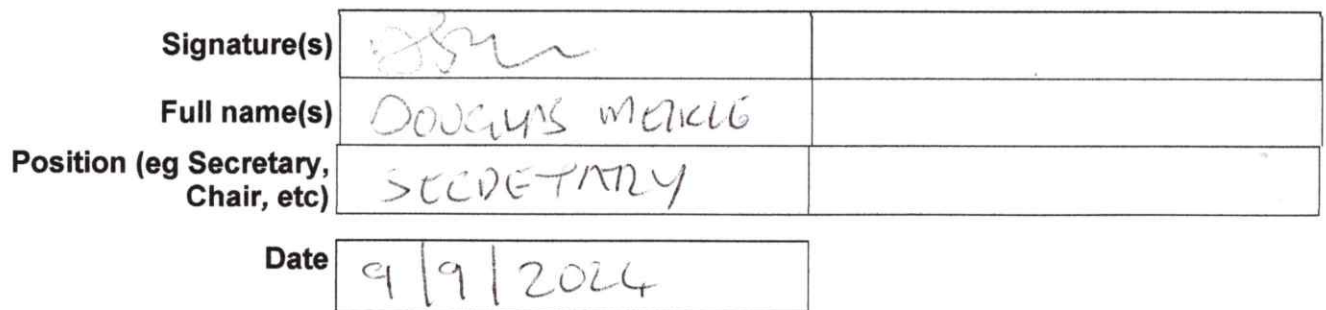 Signature(s)
Full name(s) DOUGLAS MEIKLE
Position (eg Secretary,
Chair, etc) SECRETARY
Date 9/9/2024